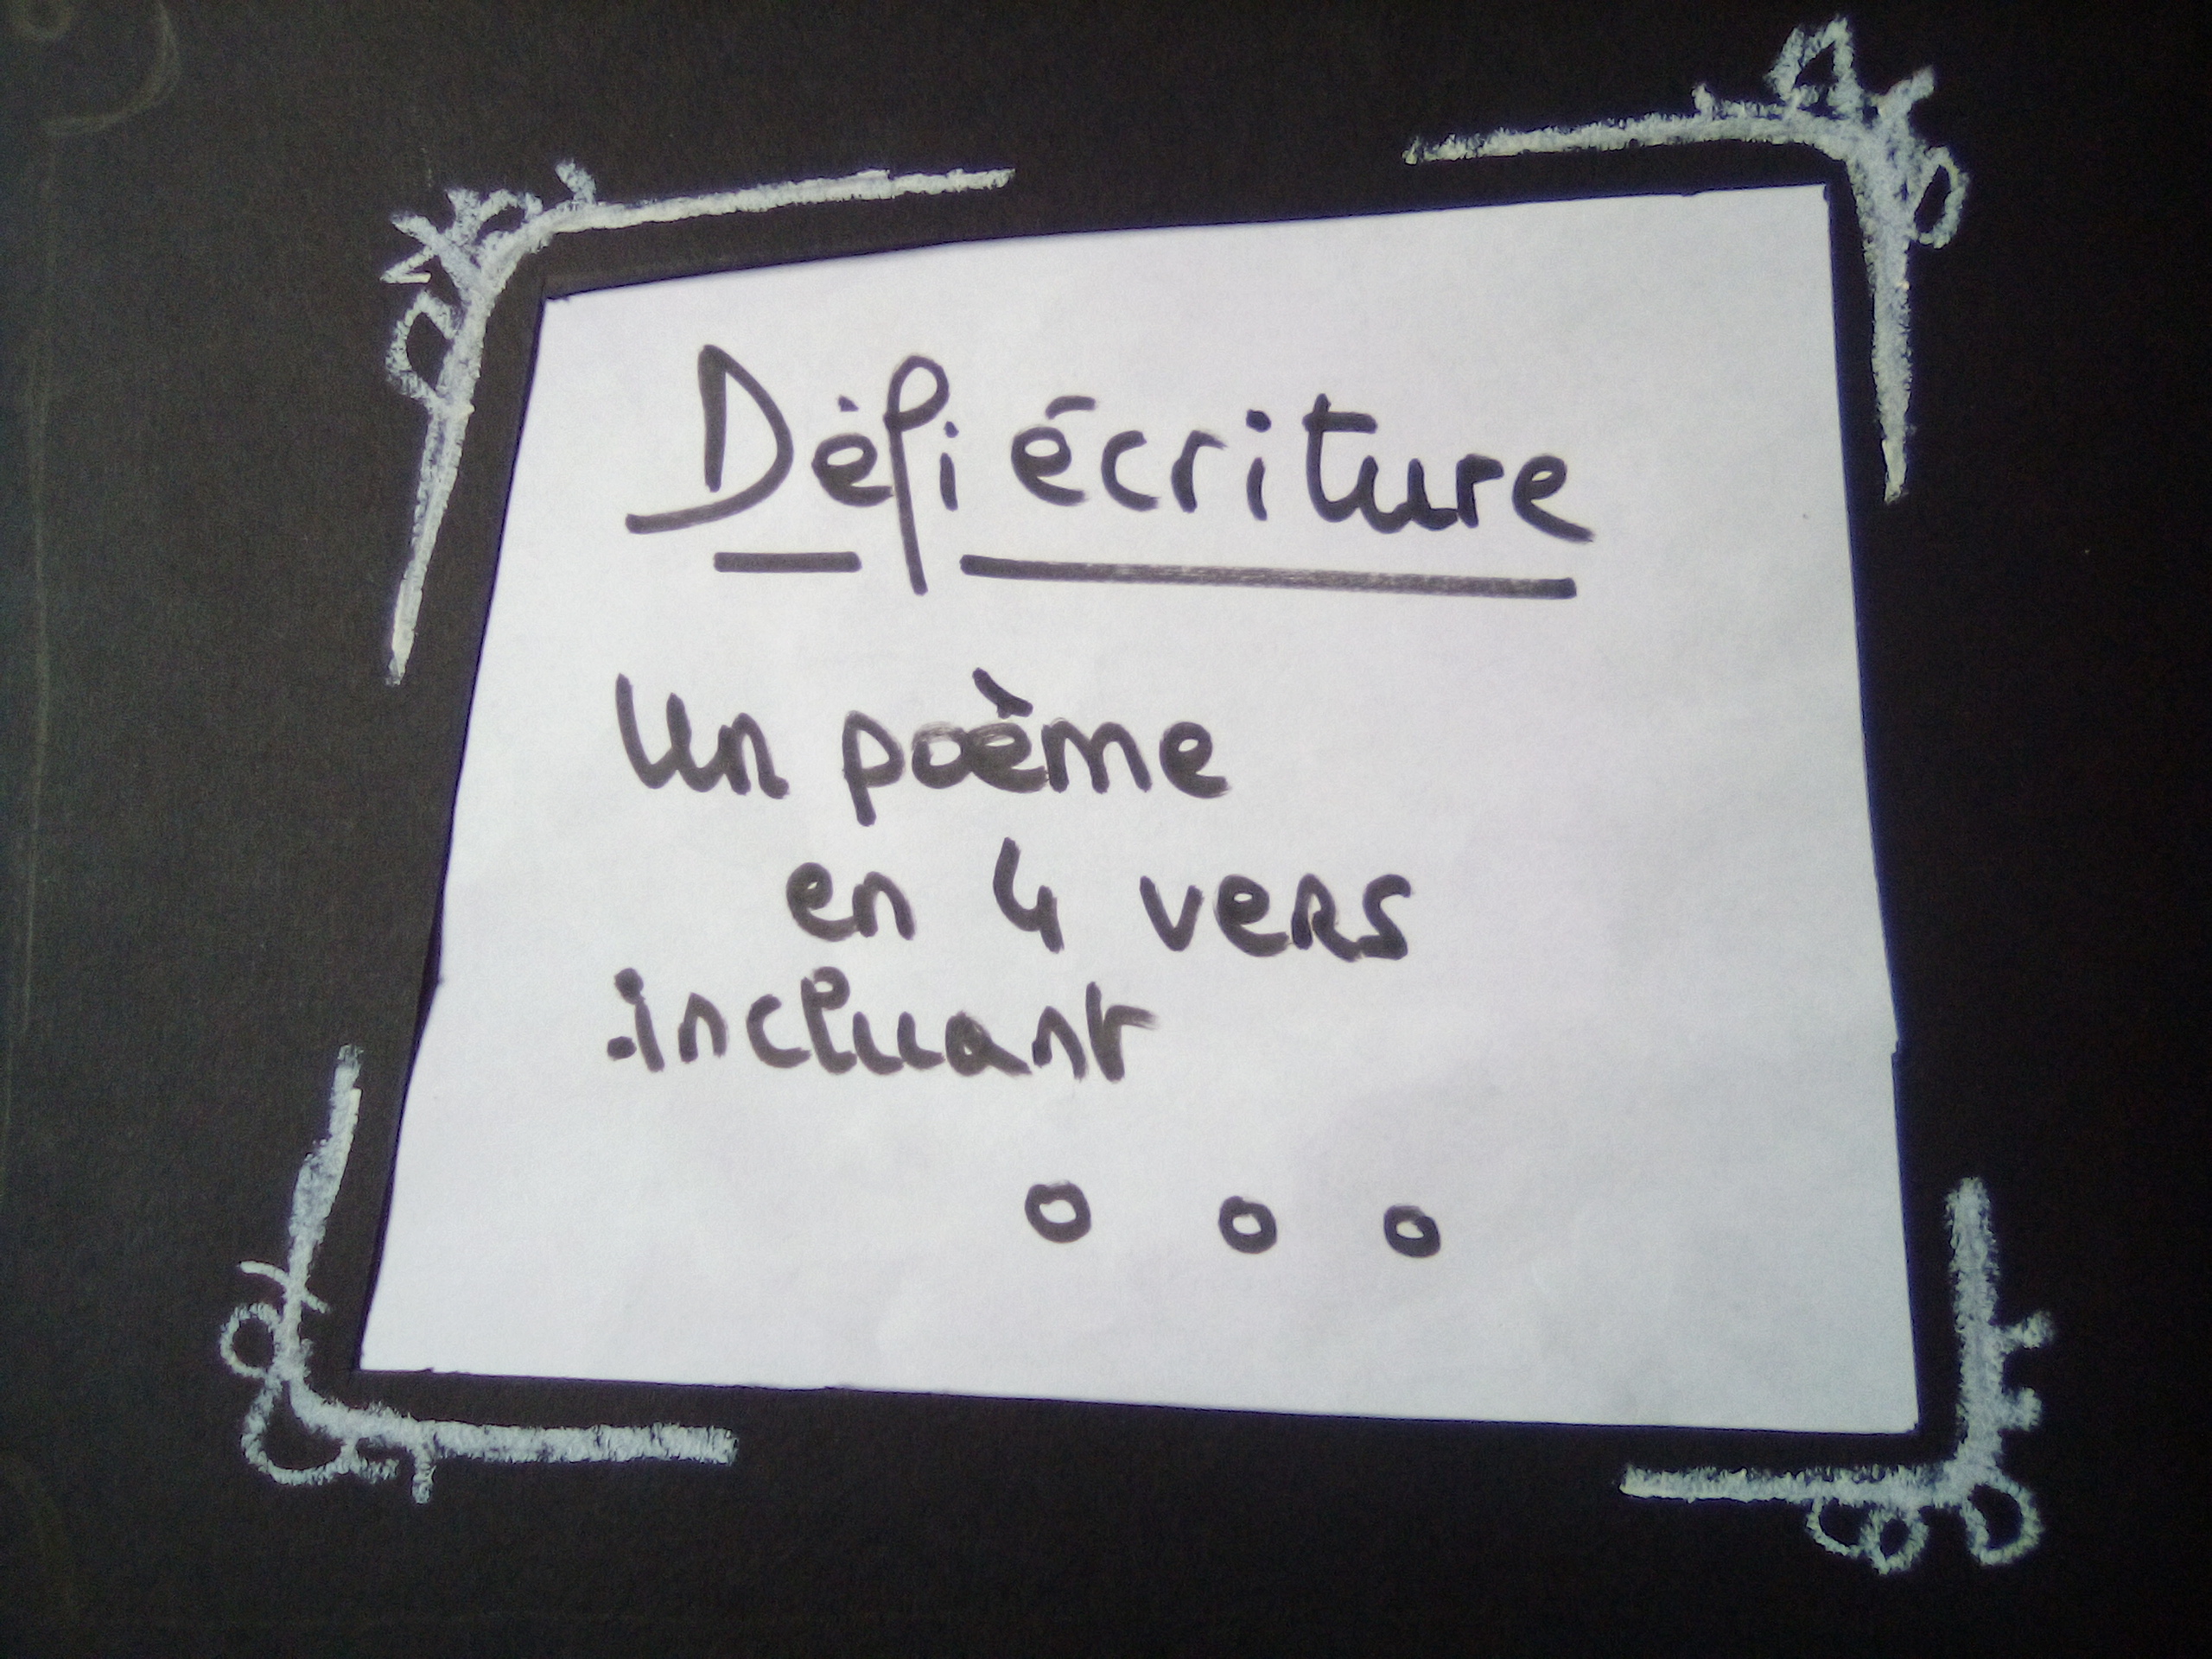 Défi écriture
Un poème
en 4 vers
incluant
o o o